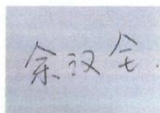 余汉全.